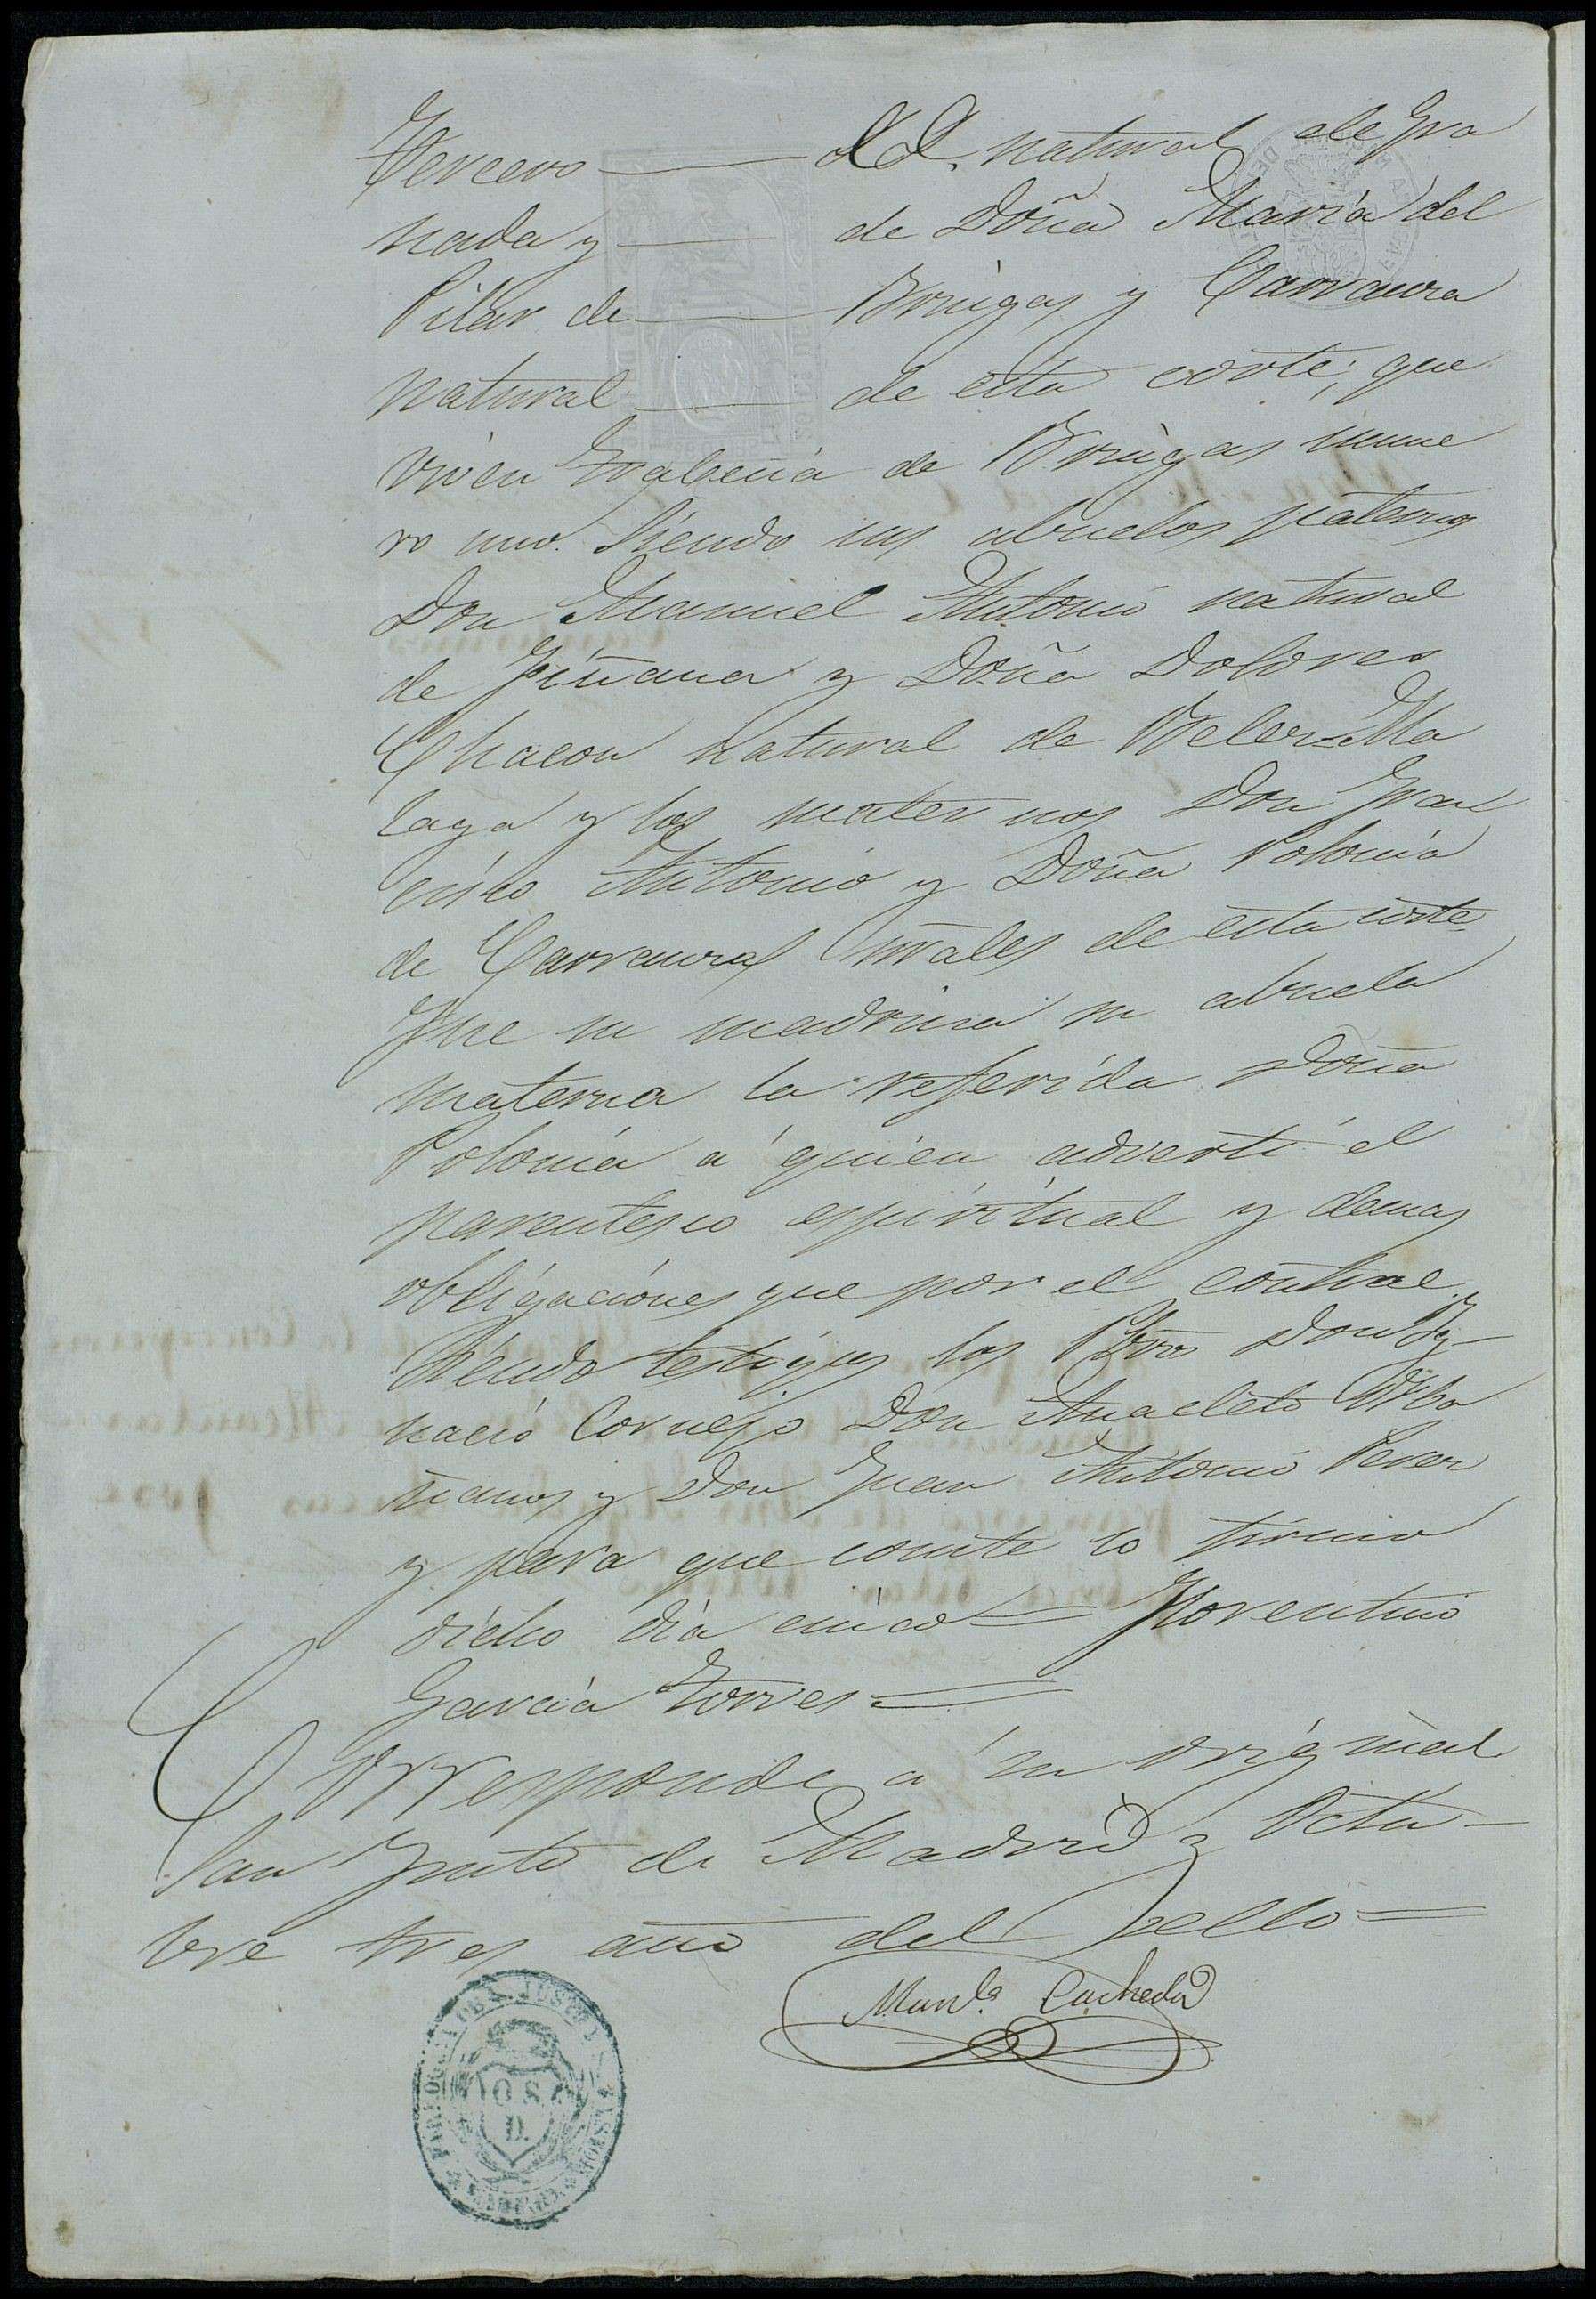 Tercero —— LL. natural de Gra
nada y —— de Doña María del
Pilar de —— Brúgas y Carranza
natural —— de esta corte, que
viven Travesía de Brúgas núme
ro uno. Siendo sus abuelos paternos
Don Manuel Antonio natural
de Fiñana y Doña Dolores
Chacon natural de Velez=Ma
laga y los maternos Don Fran
cisco Antonio y Doña Polonia
de Carranza nrales de esta corte
Fue su madrina su abuela
materna la referida Doña
Polonia á quien advertí el
parentesco espiritual y demas
obligaciones que por el contrae y
siendo testigos los Pbros Don Yg-
nacio Cornejo Don Anacleto
y Don Juan Antonio
y para que conste lo firmo
dicho dia cinco = Florentino
García Torres =
Corresponde a su original
San Justo de Madrid y Octu-
bre tres año del sello =
Cacheda
PARROQUIA DE S. JUSTO Y
O. S.
D.